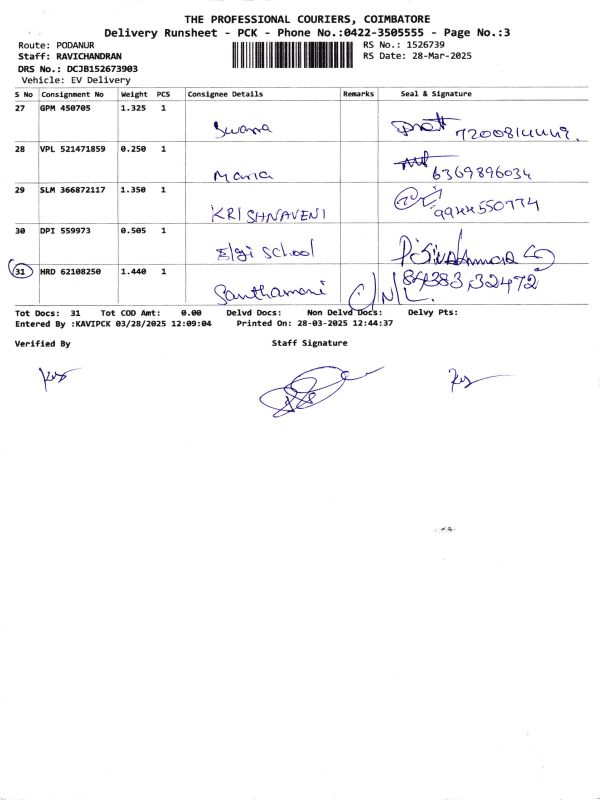 THE PROFESSIONAL COURIERS, COIMBATORE
Delivery Runsheet - PCK - Phone No.:0422-3505555 - Page No.:3
Route: PODANUR RS No.: 1526739
Staff: RAVICHANDRAN RS Date: 28-Mar-2025
DRS No.: DCJB152673903
Vehicle: EV Delivery
S No Consignment No Weight PCS Consignee Details Remarks Seal & Signature
27 GPM 450705 1.325 1
Swarna
28 VPL 521471859 0.250 1
Maria 6369896034
29 SLM 366872117 1.350 1
KRISHNAVENI 9944550774
30 DPI 559973 0.505 1
Elgi School
31 HRD 62108250 1.440 1
Santhamani 84383,32472
Tot Docs: 31 Tot COD Amt: 0.00 Delvd Docs: Non Delvd Docs: Delvy Pts:
Entered By :KAVIPCK 03/28/2025 12:09:04 Printed On: 28-03-2025 12:44:37
Verified By Staff Signature